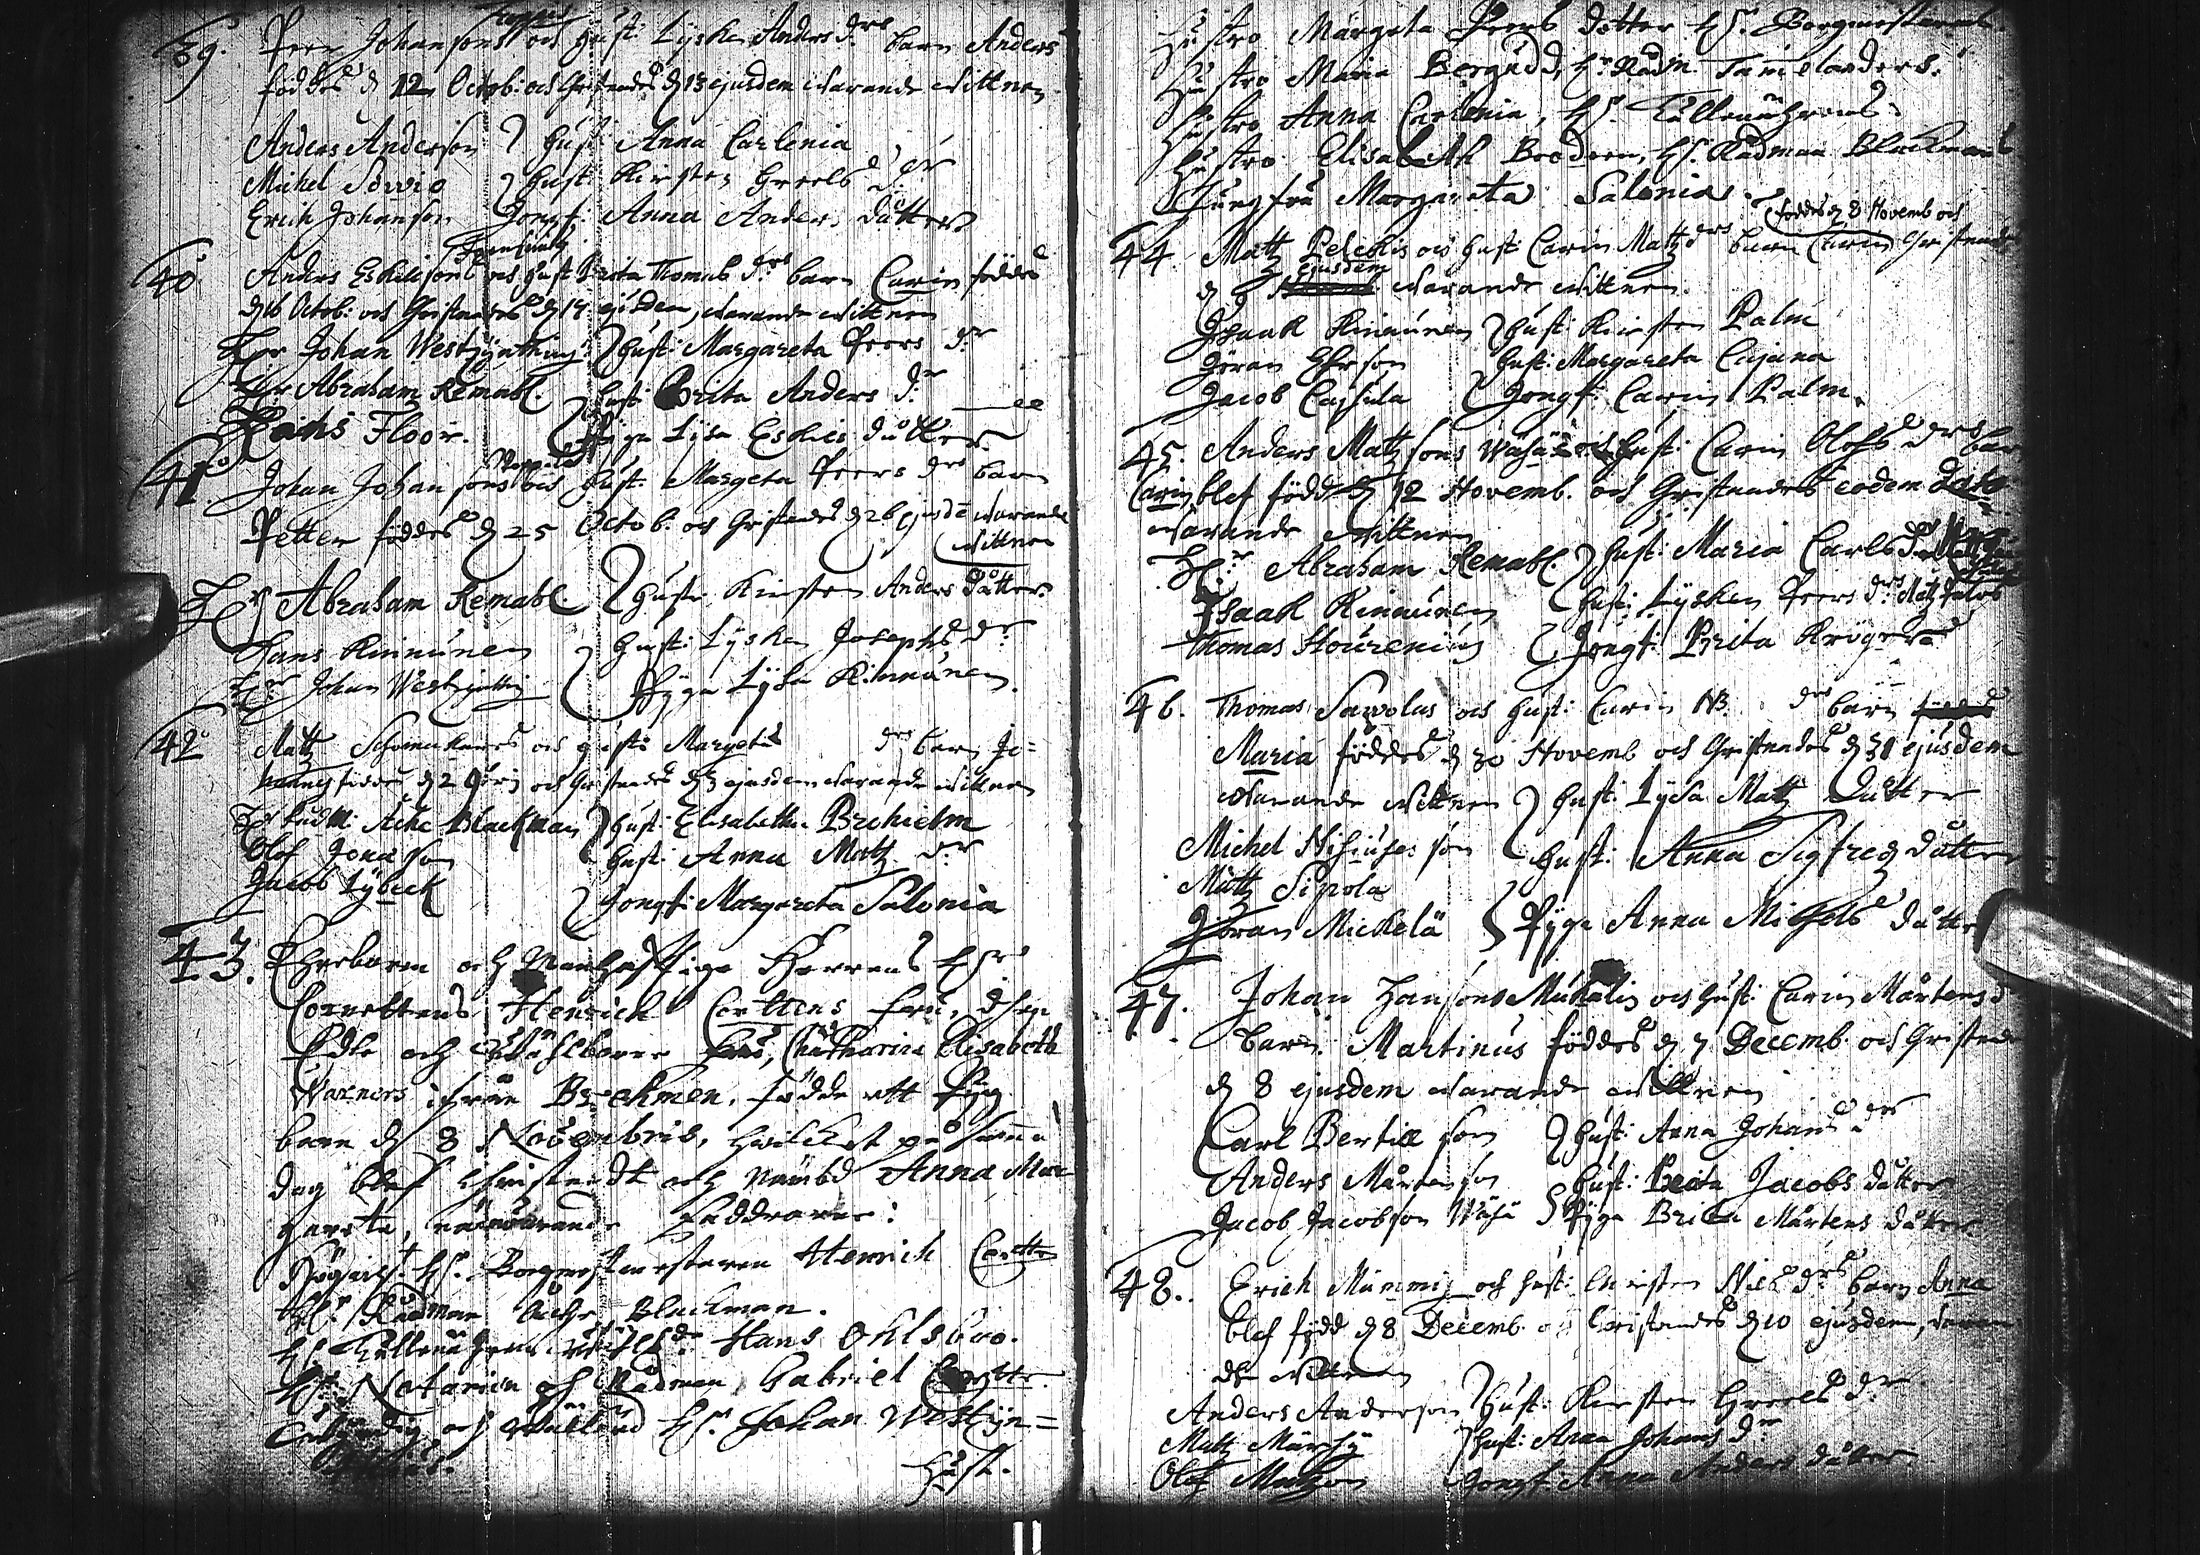 39. Peer Johansons och hust: Lysken Anders drs barn Anders
föddes d 12 Octob: och Christnades d 13 ejusdem warande wittnen
Anders Anderson hust Anna Carlenia
Michel Sowio hust: Kirsten Greels dr
Erich Johanson Jongf: Anna Anders dåtter
40. Anders Eskilsons och hust Brita Thomas drs barn Carin föddes
d 16 Octob: och Christnades d 17 ejusdem, warande wittnen
Her Johan Westzynthius hust: Margareta Peers dr
Her Abraham Remahl. hust: Brita Anders dr
Hans Floor. Pyga Lysa Eskils dåtter
41. Johan Johansons och hust: Margeta Peers drs barn
Petter föddes d 25 Octob: och Christnades d 26 ejusdē warande
wittnen
Hr Abraham Remahl. hustr: Kirsten Anders Dåtter.
Hans Kinnunen hust: Lysken Josephs dr
Hr Johan Westzynthi Pyga Lysa Kinnunen.
42 Matz och hust: Margetas drs barn Jo=
hannes föddes d 2 och Christnades d 3 ejusdem warande wittnen
Hr Rådm: Åcke Blackman hust: Elisabetha Brehielm
Olof Jonason hust: Anna Matz dr
Jacob Lybeck Jongf: Margareta Salonia
43. Ehreborne och Manhafftige Herrens Hr
Cornettens Henrich Corttens fru, den
Edle och Wählborne Chatharina Elisabeth
Warners ifrån Beckmen, födde ett Pyg
barn d 8 Novembris, hwilket på samma
dag blef Christnadt och nämbd Anna Mar
gareta, närwarande Faddrarne:
Hr. Borgmestaren Henrich Cortten
Hr. Rådman Åche Blackman.
Hr Tullnären Hans Ohlsboo.
Hr. Notarien och Rådman Gabriel Cortte
och Hr. Johan Westzyn=
thius.
Hust.
Hustro Margeta Peers dotter Hr. Borgmestarens
Hustro Maria Bergudd, Hr Rådm. Tamelanders.
Hustro Anna Carlenia, Hr. Tullnährens.
Hustro Elisabeth Booderen, Hr. Rådman Blackmans
Jungfru Margareta Salonia.
föddes d 8 Novemb och
44. Matz Pelckis och hust: Carin Matz drs barn Carin Christnades
ejusdem
d 9 warande wittnen.
Isaak Kinnunen hust: Kirsten Palm
Jöran Eherson hust: Margareta Cajana
Jacob Cajhula Jongf: Carin Palm.
45. Anders Matzsons Wähä och hust: Carin Olofs drs bar
Carin blef född d 12 Novemb. och Christnades eodem Dato
warande wittnen
Hr Abraham Remahl. hust: Maria Carls dr
Isaak Kinnunen hust: Lysken Peers dr
Thomas Stourenius Jongf: Brita Krögers
46. Thomas Sawolas och hust: Carin NB. drs barn
Maria föddes d 30 Novemb och Christnades d 31 ejusdem
warande wittnen hust: Lysa Matz Dåtter
Michel hust: Anna Sigfredz dåtter
Matz Sipola
Jöran Mickelä Pyga Anna Michels dåtte
47. Johan Hansons Muhalin och hust: Carin Mårtens d
barn Martinus föddes d 7 Decemb. och Christnad
d 8 ejusdem warande wittnen
Carl Bertillson hust: Anna Johans dr
Anders Mårtenson hust: Brita Jacobs dåtter
Jacob Jacobson Wähä Pyga Brita Mårtens dåtter
48. Erich Mummi och hust: Kirsten Niels drs barn Anna
blef född d 8 Decemb. och Christnades d 10 ejusdem, waran
de wittnen
Anders Anderson hust: Kirsten Greels dr
Matz Märhy hust: Anna Johans dr
Olof Matzon Jongf. Anna Anders dåtter